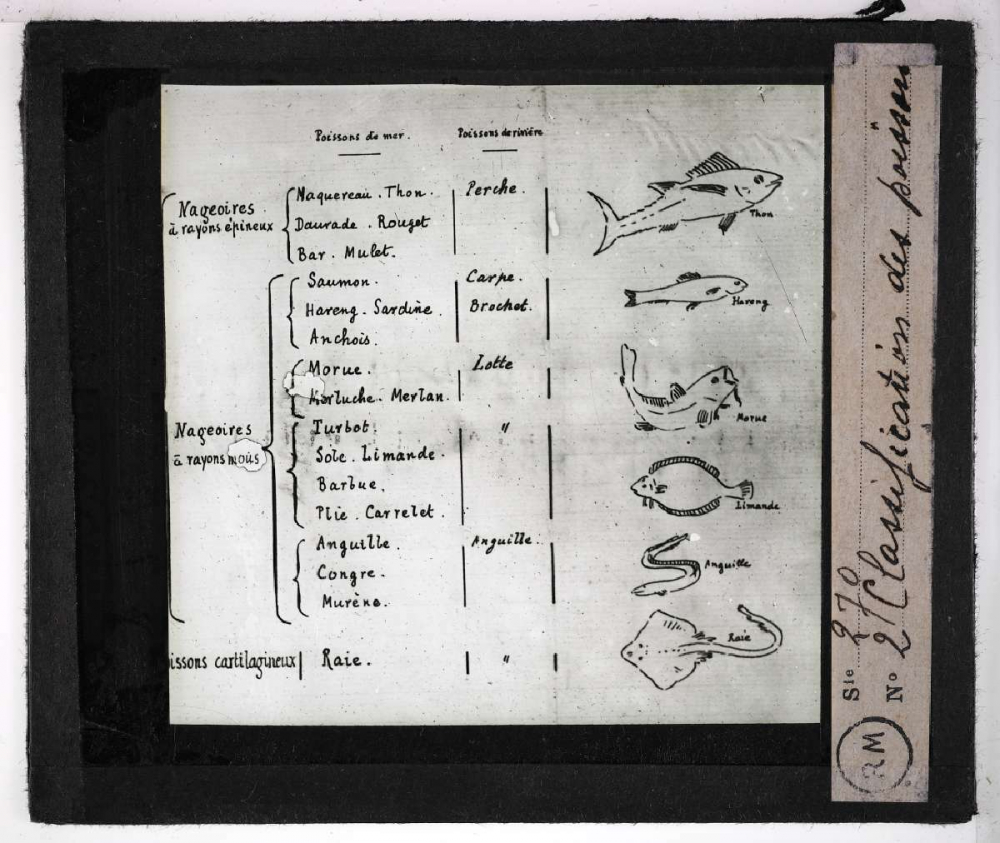 Poissons de mer.
Poissons de rivière
Nageoires
à rayons épineux
Maquereau . Thon .
Daurade . Rouget
Bar . Mulet.
Perche.
Thon
Nageoires
à rayons mous
Saumon.
Hareng. Sardine.
Anchois.
Carpe.
Brochet.
Hareng
Morue.
Merluche. Merlan.
Lotte
Morue
Turbot.
Sole. Limande.
Barbue.
Plie. Carrelet.
"
Limande
Anguille.
Congre.
Murène.
Anguille.
Anguille
issons cartilagineux
Raie.
"
Raie
RM
Sie 270
No 2 Classification des poissons